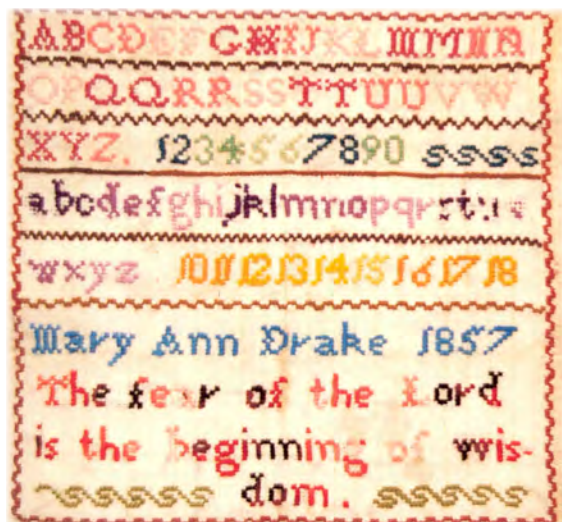 ABCDEFGHIJKLMMNN
OPQQRRSSTTUUVW
XYZ. 1234567890
abcdefghijklmnopqrstuv
wxyz 10 11 12 13 14 15 16 17 18
Mary Ann Drake 1857
The fear of the Lord
is the beginning of wis-
dom.